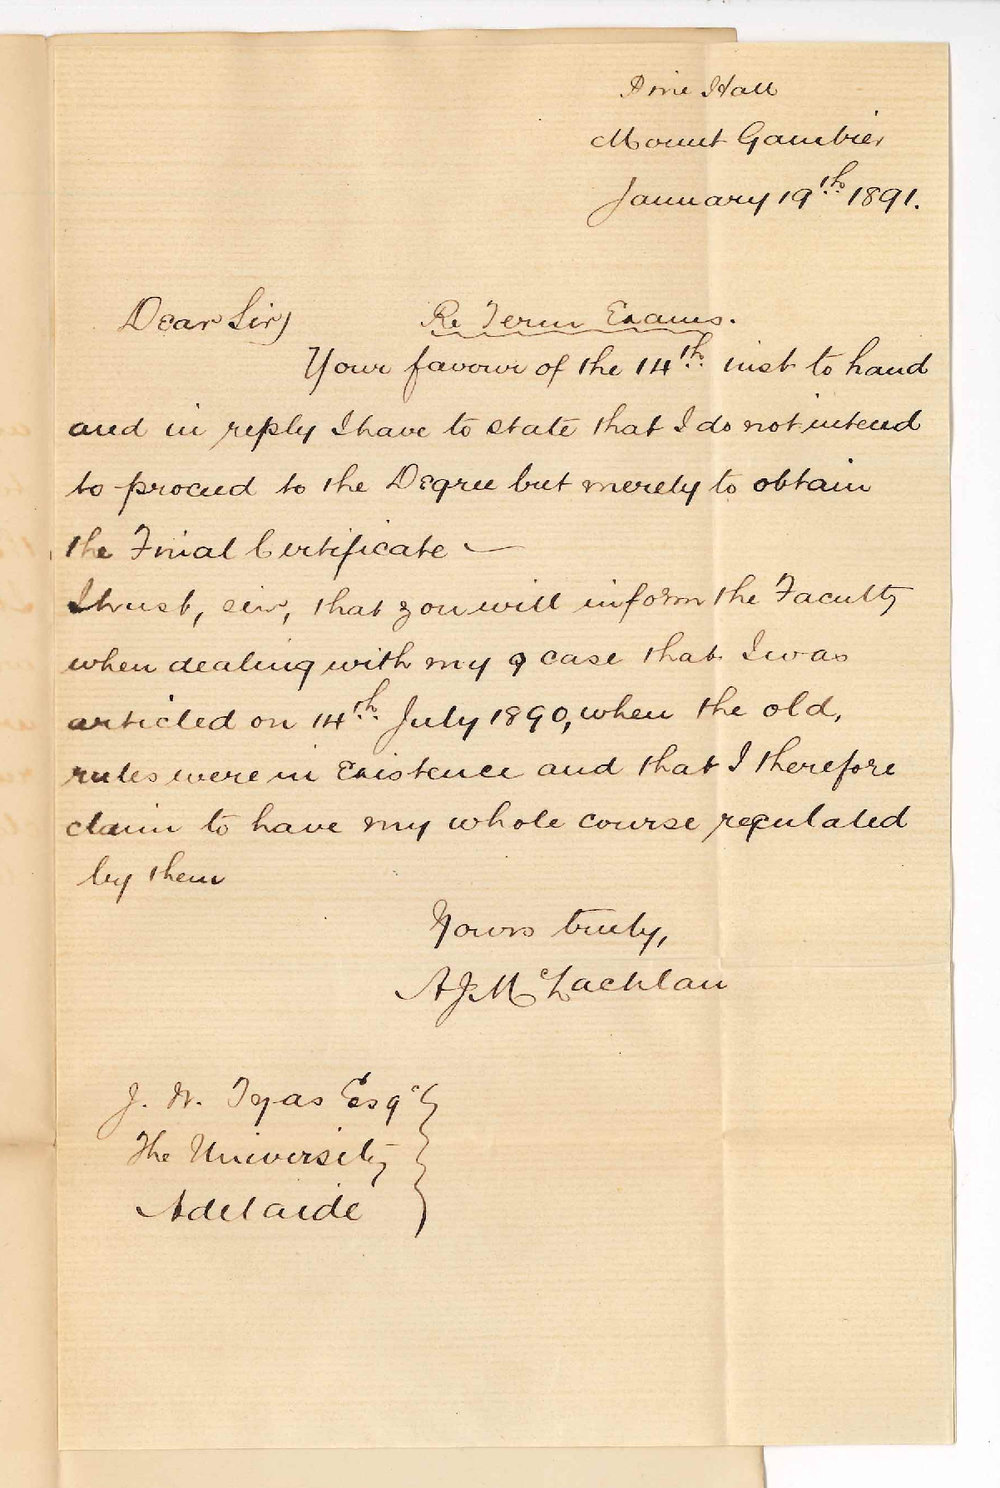 Pine Hall
Mount Gambier
January 19th. 1891.
Dear Sir,
Re Term Exams.
Your favour of the 14th. inst to hand
and in reply I have to state that I do not intend
to proceed to the Degree but merely to obtain
the Final Certificate —
I trust, sir, that you will inform the Faculty
when dealing with my case that I was
articled on 14th. July 1890, when the old,
rules were in existence and that I therefore
claim to have my whole course regulated
by them
Yours truly,
A J McLachlan
J. W. Tyas Esqr
The University
Adelaide